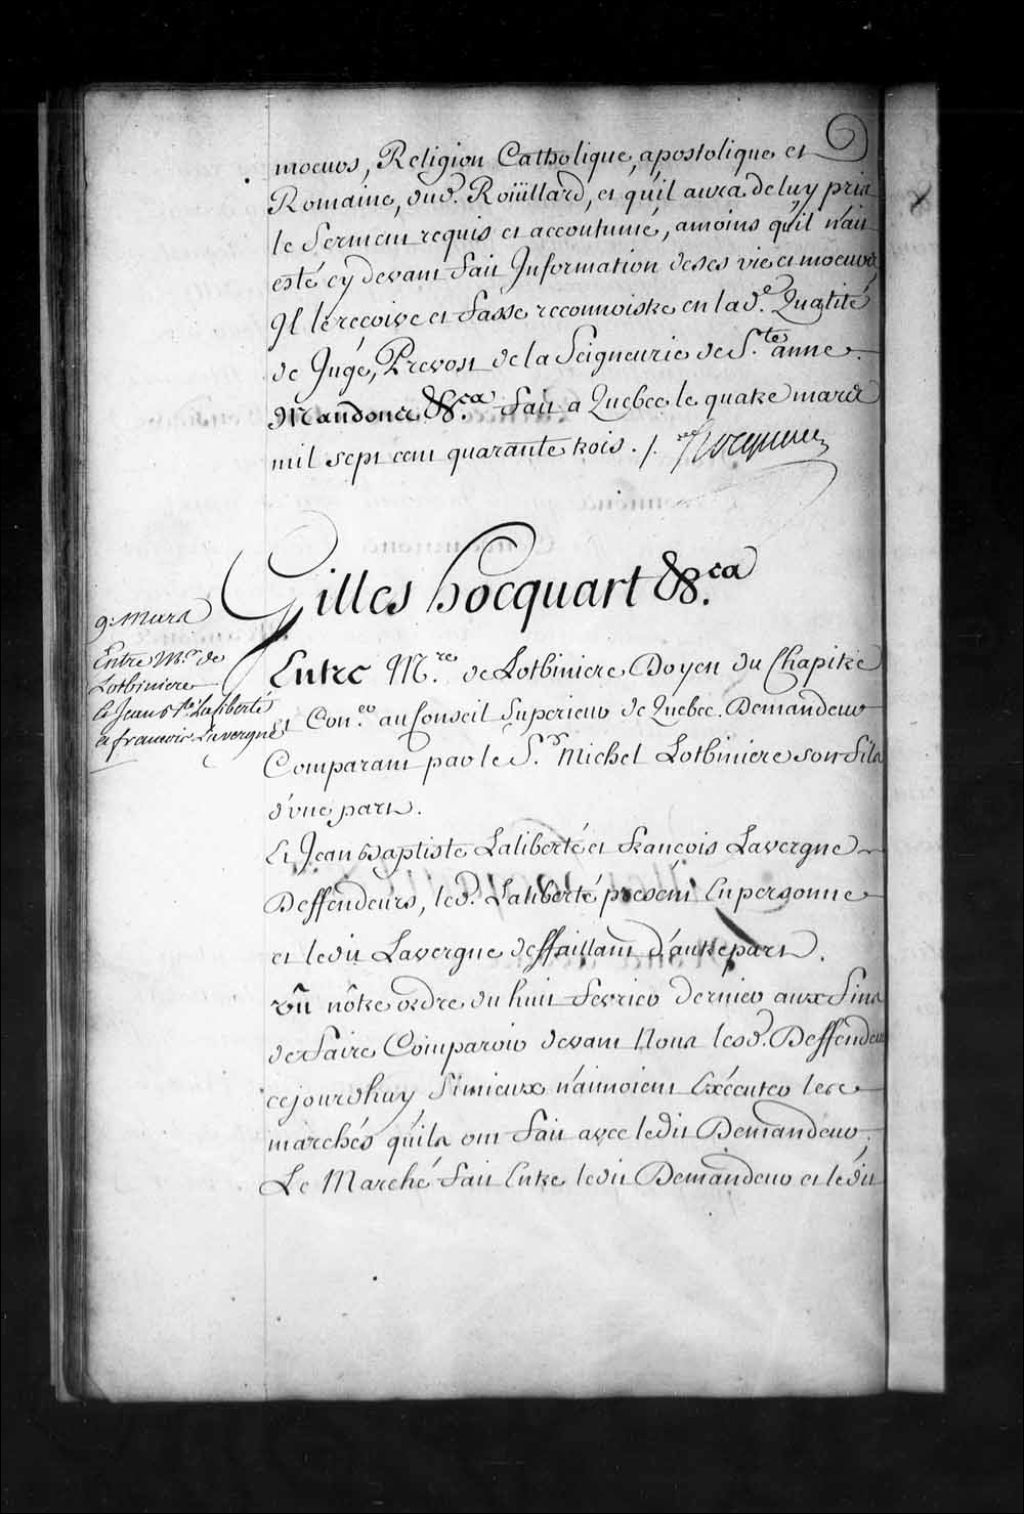 moeurs, Religion Catholique, apostolique et
Romaine, dud. Roüillard, et qu'il aura de luy pris
le Serment requis et accoutumé, amoins qu'il n'ait
esté cy devant fait Information de ses vie et moeurs,
Il le reçoive et fasse reconnoistre en lad.e Qualité
de Juge, Prevost de la Seigneurie de S.te anne.
Mandons &.ca fait a Quebec le quatre mars
mil sept cent quarante trois ./. Hocquart
Gilles hocquart &.ca
9. Mars
Entre M.r de
Lotbiniere
et Jean B.te Laliberté
et francois Lavergne
Entre M.re de Lotbiniere Doyen du Chapitre
et Con.er au Conseil Superieur de Quebec. Demandeur
Comparant par le S.r Michel Lotbiniere son fils
d'une part.
Et Jean Baptiste Laliberté et francois Lavergne
Deffendeurs, led. Laliberté présent En personne
et ledit Lavergne deffaillant d'autre part.
Vû nôtre ordre du huit fevrier dernier aux fins
de faire Comparoir devant Nous lesd. Deffendeurs
cejourd'huy Si mieux n'aimoient Exécuter les
marchés qu'ils ont fait avec ledit Demandeur,
Le Marché fait Entre ledit Demandeur et ledit